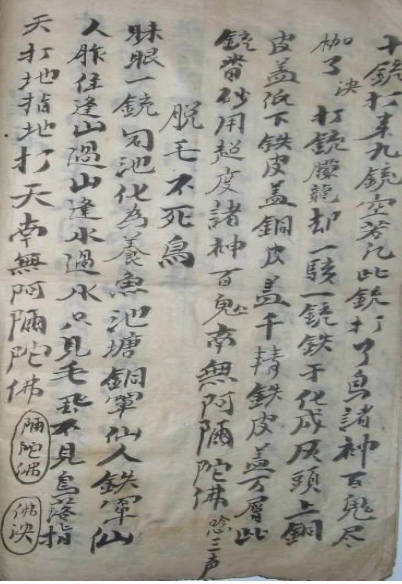 十銃打来九銃空若凡此銃打了鳥諸神百鬼尽
枷了決 打銃朦朧却一駭一銃鉄牙化成灰頭上銅
皮盖低下鉄皮盖銅皮盖千精鉄皮盖万層此
銃當砂用超度諸神百鬼南無阿彌陀佛念三声
脱毛不死鳥
眼一銃勾池化為養魚池塘銅軍仙人鉄軍仙
人胙住逢山過山逢水過水只見毛飛不見鳥落指
天打地指地打天南無阿彌陀佛 彌陀佛 佛決